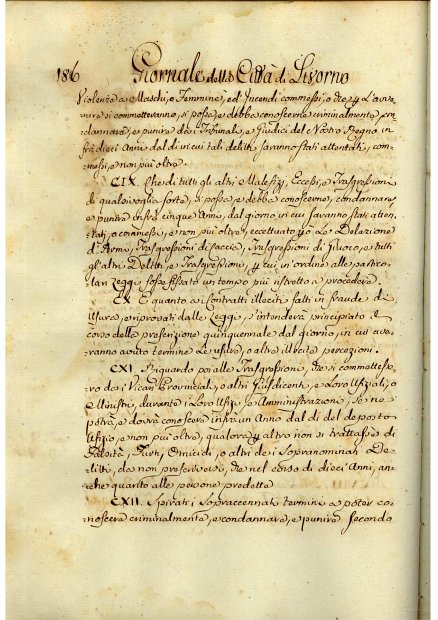 186 Giornale della Città di Livorno
Violenze a Maschi, o Femmine, ed Incendi commessi, o che p. l'avve-
nire si commetteranno, si possa, e debba conoscere criminalmente, con-
dannare, e punire da Tribunali, e Giudici del Nostro Regno in
frà dieci Anni dal dì in cui tali delitti saranno stati attentati, com-
messi, e non più oltre.
CIX. Che di tutti gli altri Malefizj, Eccessi, e Trasgressioni
di qualsivoglia sorte, si possa, e debba conoscerne, condannare,
e punire infrà cinque Anni, dal giorno in cui saranno stati atten-
tati, o commessi, e non più oltre, eccettuato p. le Delazione
d'Armi, Trasgressioni di caccia, Trasgressioni di Giuoco, e tutti
gl'altri Delitti, e Trasgressioni, p. cui in ordine alle partico-
lari Legge fosse fissato un tempo più ristretto a procedere.
CX. E quanto a Contratti illeciti fatti in fraude di
Usura, e riprovati dalle Legge, s'intenderà principiato il
corso della prescrizione quinquennale dal giorno, in cui ave-
ranno avuto termine le usure, o altre illecite percezioni.
CXI. Riguardo poi alle Trasgressioni, che si commettesse-
ro da i Vicari Provinciali, o altri Giusdicenti, e Loro Ufiziali, o
Ministri, durante i Loro Ufizj, e Amministrazione, se ne
potrà, e dovrà conoscere infra un Anno dal dì del deposto
Ufizio, e non più oltre, qualora p. altro non si trattasse di
Falsità, Furti, Omicidi, o altri dei Sopranominati De-
litti, che non prescrivere, che nel corso di dieci Anni, an-
che quanto alle persone predette.
CXII. Spirati i Sopraccennati termini a poter co-
noscere criminalmente, e condannare, e punire Secondo